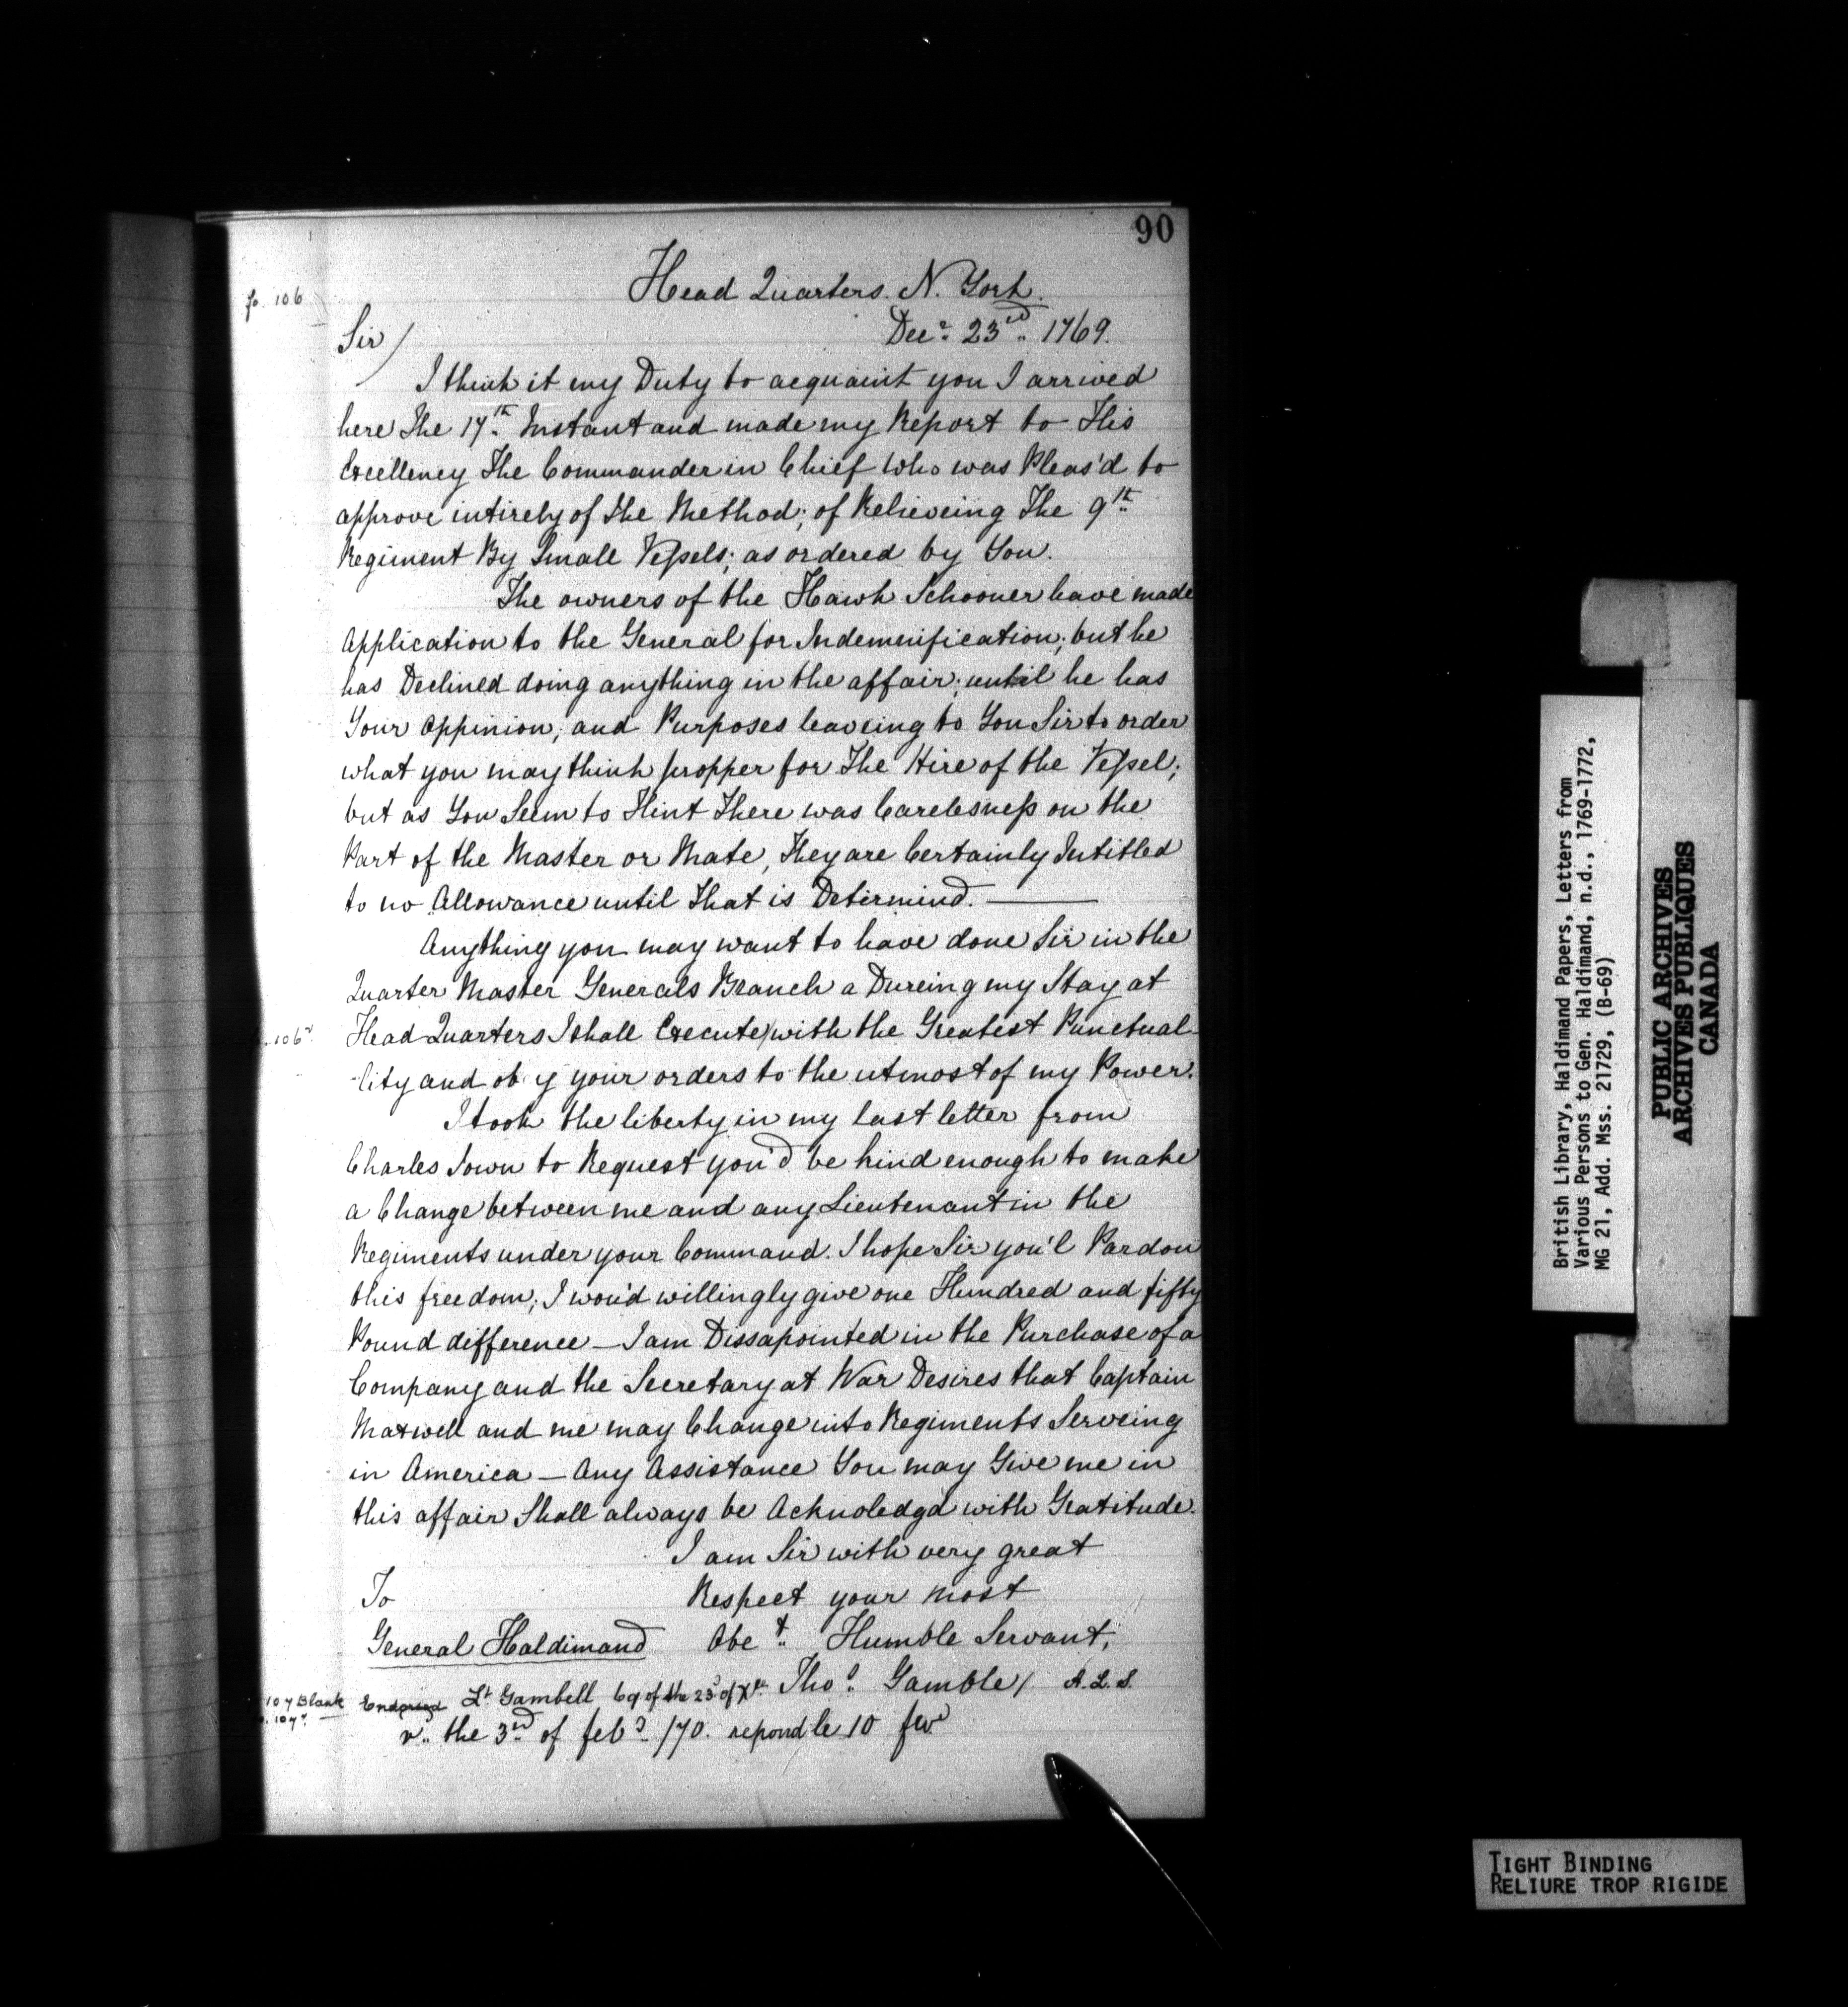 90
fo. 106
Head Quarters. N. York.
Decr. 23rd. 1769.
Sir/
I think it my Duty to acquaint you I arrived
here The 17th. Instant and made my Report to His
Excellency The Commander in Chief who was Pleas'd to
approve intirely of the Method; of Relieveing The 9th.
Regiment By Small Vessels; as ordered by You.
The owners of the Hawk Schooner have made
Application to the General for Indemnification; but he
has Declined doing anything in the affair; until he has
Your Oppinion; and Purposes leaveing to You Sir to order
what you may think propper for The Hire of the Vessel;
but as You Seem to Hint There was Carelesness on the
Part of the Master or Mate, They are Certainly Intitled
to no Allowance until That is Determind.
Anything you may want to have done Sir in the
Quarter Master Generals Branch a Dureing my Stay at
106v
Head Quarters I shall Execute/with the Greatest Punctual-
-lity and ob y your orders to the utmost of my Power.
I took the liberty in my last letter from
Charles Town to Request you'd be kind enough to make
a Change between me and any Lieutenant in the
Regiments under your Command. I hope Sir you'l Pardon
this freedom; I wou'd willingly give one Hundred and fifty
Pound difference — I am Dissapointed in the Purchase of a
Company and the Secretary at War Desires that Captain
Maxwell and me may Change into Regiments Serveing
in America — Any Assistance You may Give me in
this affair Shall always be Acknoledgd with Gratitude.
I am Sir with very great
To
Respect your most
General Haldimand
Obet. Humble Servant,
Thos. Gamble/ A.L.S.
107 Blank
107v
Endorsed Lt. Gambell 69 of the 23d of Xr.
r.. the 3rd of feb. /70. repond le 10 fevr
British Library, Haldimand Papers, Letters from
Various Persons to Gen. Haldimand, n.d., 1769-1772,
MG 21, Add. Mss. 21729, (B-69)
PUBLIC ARCHIVES
ARCHIVES PUBLIQUES
CANADA
TIGHT BINDING
RELIURE TROP RIGIDE